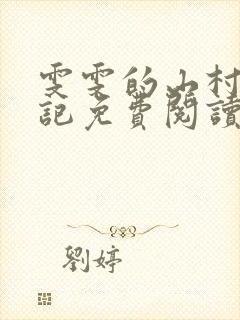 雯雯的山村
記免費閱讀
劉婷